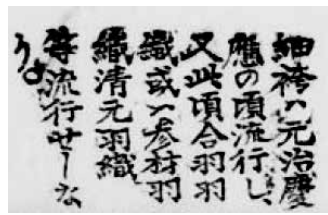 細袴ハ元治慶
應の頃流行し、
又此頃合羽羽
織或ハ参材羽
織清元羽織
等流行せしな
り。